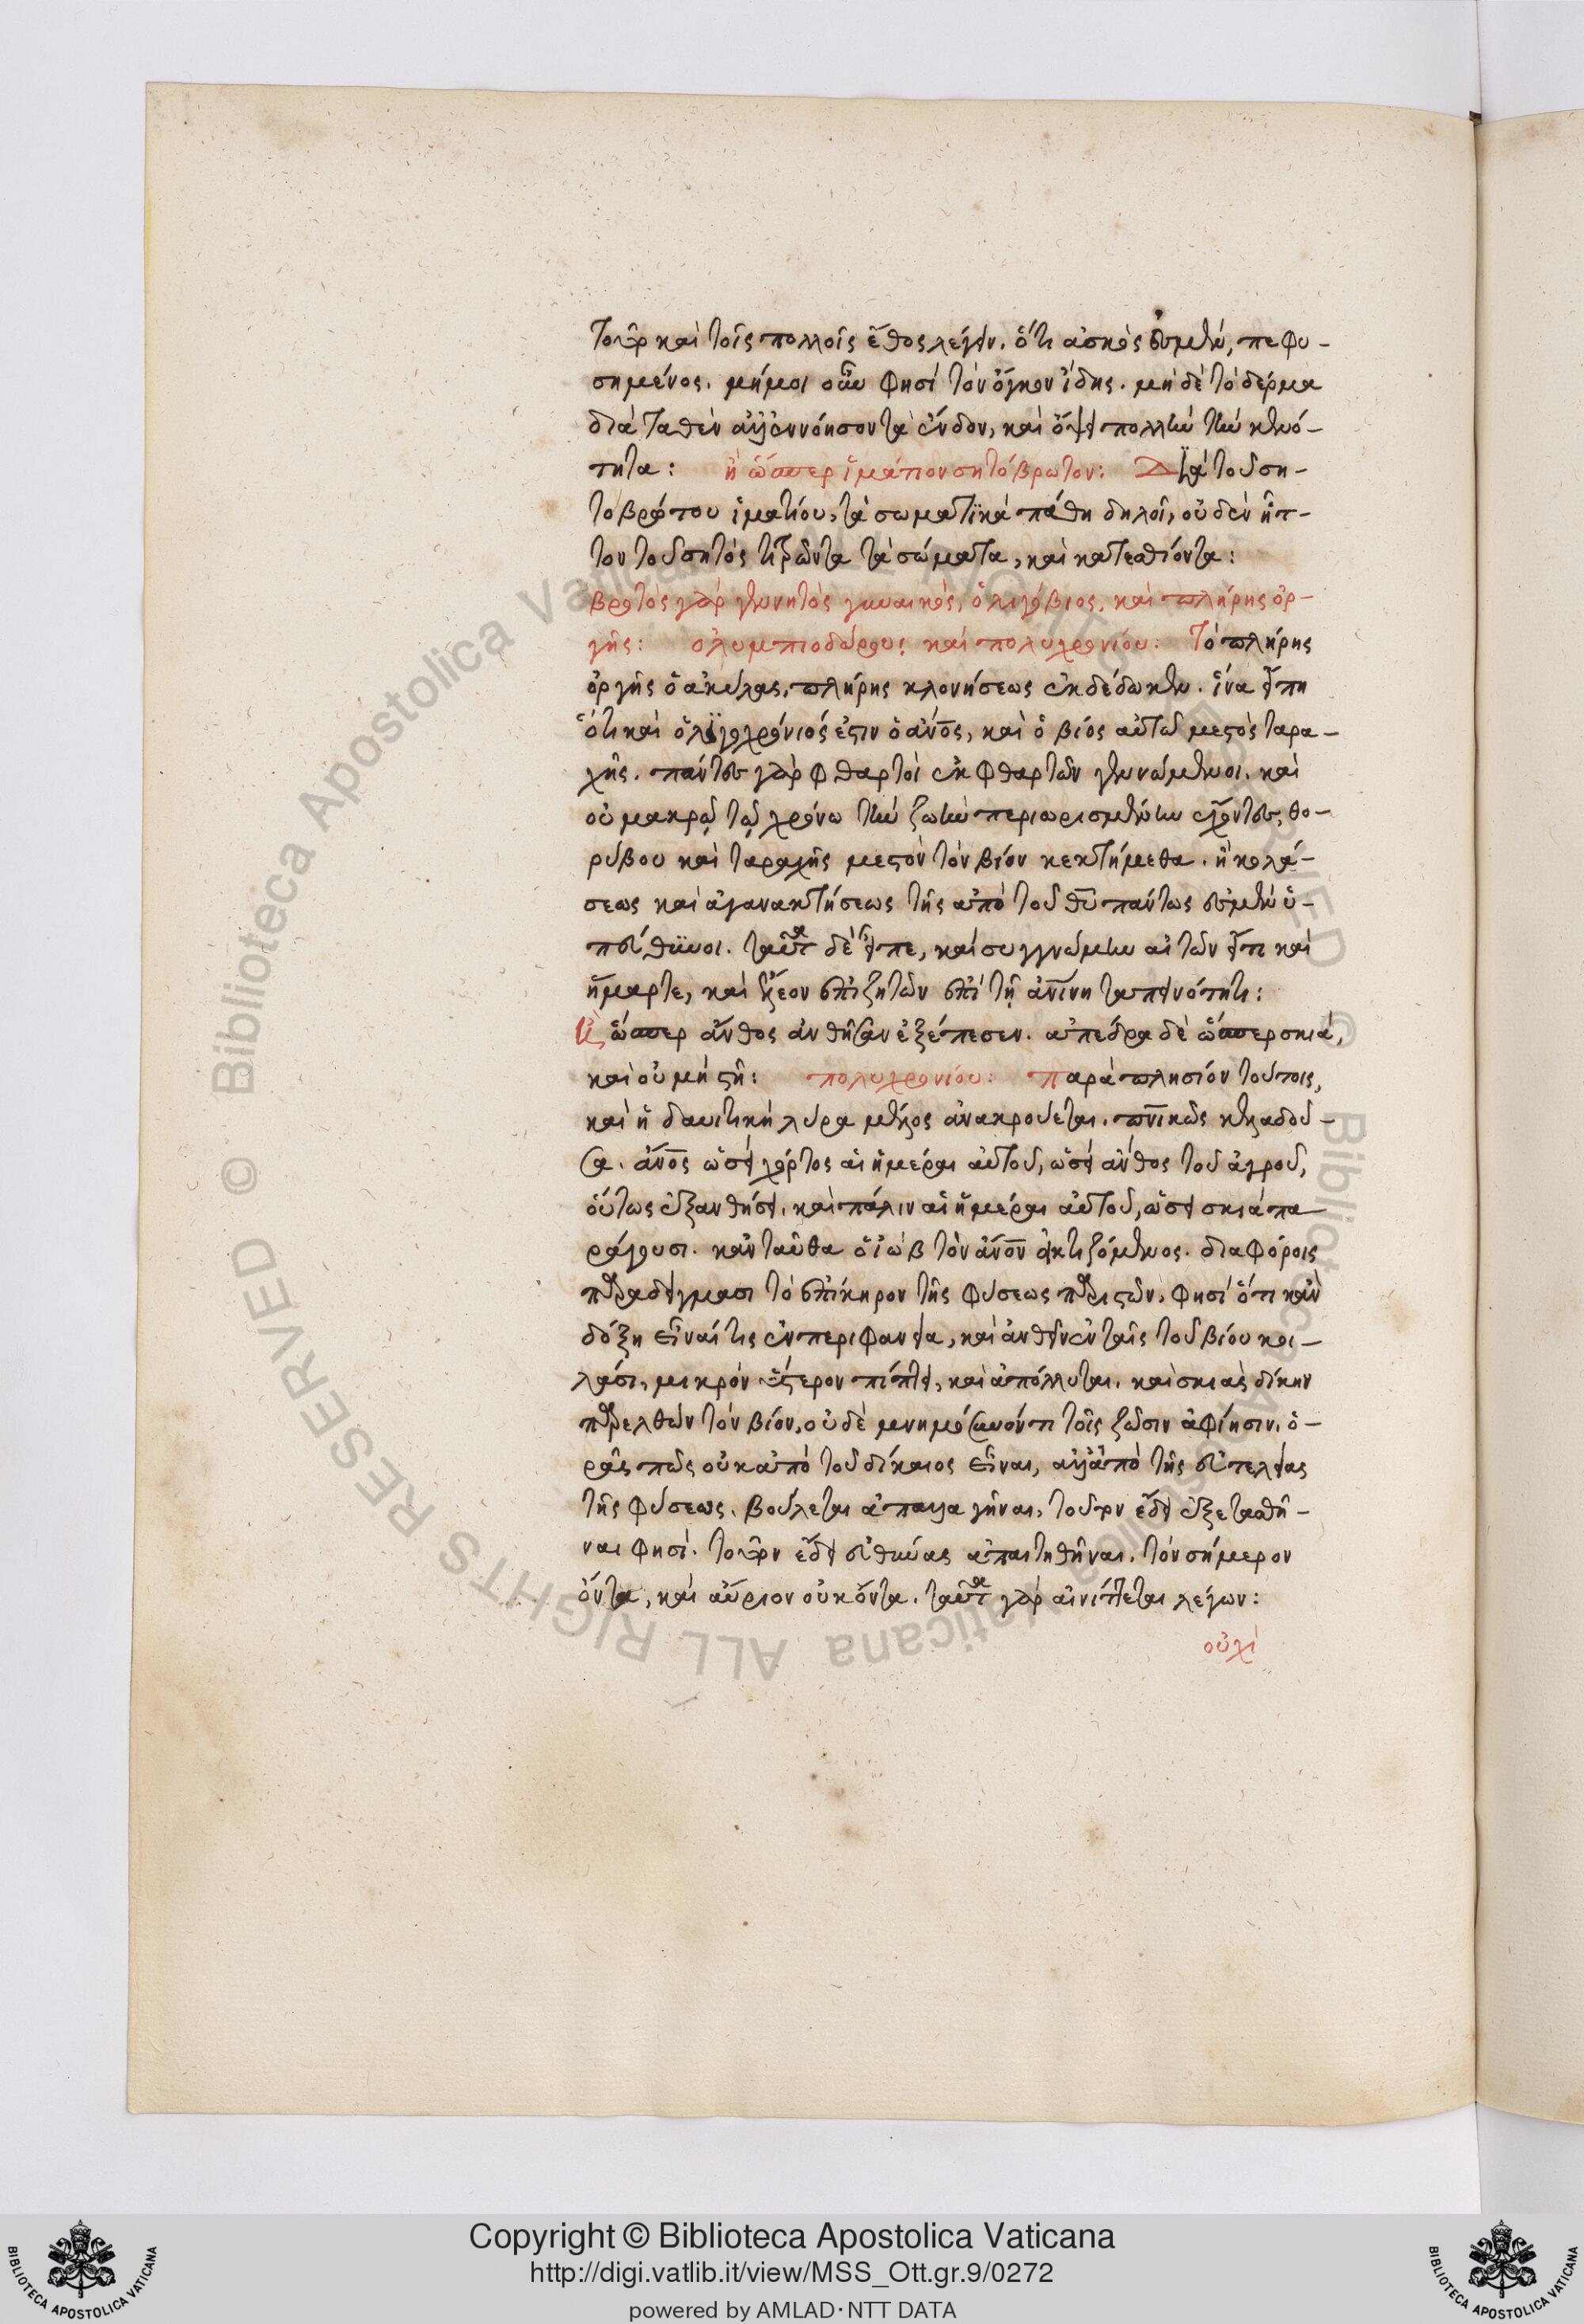 τοῦτο καὶ τοῖς πολλοῖς ἔθος λέγειν. ὅτι ἀσκός ἐσμεν, πεφυ-
σημένος. μή μοι οὖν φησὶ τὸν ὄγκον ἴδης. μὴ δὲ τὸ δέρμα
διαταθὲν ἀλλ' ἐννόησον τὰ ἔνδον, καὶ ὄψει πολλὴν τὴν κενό-
τητα: ἢ ὥσπερ ἱμάτιον σητόβρωτον: Διὰ τοῦ ση-
τοβρώτου ἱματίου, τὰ σωματικὰ πάθη δηλοῖ, οὐδὲν ἧτ-
τον τοῦ σητὸς τιτρῶντα τὰ σώματα, καὶ κατεσθίοντα:
βροτὸς γὰρ γεννητὸς γυναικός, ὀλιγόβιος, καὶ πλήρης ὀρ-
γῆς: ολυμπιοδώρου: καὶ πολυχρονίου: Τὸ πλήρης
ὀργῆς ὁ ἀκύλας, πλήρης κλονήσεως ἐκδέδωκεν. ἵνα εἴπη
ὅτι καὶ ὀλιγοχρόνιός ἐστιν ὁ ἄνος, καὶ ὁ βίος αὐτῶ μεστὸς ταρα-
χῆς. πάντες γὰρ φθαρτοὶ ἐκ φθαρτῶν γενώμενοι. καὶ
οὐ μακρῷ τῷ χρόνω τὴν ζωὴν περιωρισμένην ἔχοντες, θο-
ρύβου καὶ ταραχῆς μεστὸν τὸν βίον κεκτήμεθα. ἢ κολά-
σεως καὶ ἀγανακτήσεως τῆς ἀπὸ τοῦ θυ πάντως ἐσμὲν ὑ-
πεύθυνοι. ταῦτα δὲ εἶπε, καὶ συγγνώμην αἰτῶν εἴ τι καὶ
ἥμαρτε, καὶ ἔλεον ἐπιζητῶν ἐπὶ τῇ ἀνίνη ταπεινότητι:
ἢ ὥσπερ ἄνθος ἀνθῆσαν ἐξέπεσεν. ἀπέδρα δὲ ὥσπερ σκιά,
καὶ οὐ μὴ στῆ: πολυχρονίου: παραπλησίον τούτοις,
καὶ ἡ δαυιτικὴ λύρα μέλος ἀνακρούεται. πνικῶς κελαδοῦ-
σα. ἄνος ὡσεὶ χόρτος αἱ ἡμέραι αὐτοῦ, ὡσεὶ ἄνθος τοῦ ἀγροῦ,
οὕτως ἐξανθήσει. καὶ πάλιν αἱ ἡμέραι αὐτοῦ, ὡσεὶ σκιὰ πα
ράγουσι. κἀνταῦθα ὁ ἰὼβ τὸν ἄνον οἰκτιζόμενος. διαφόροις
παραδείγμασι τὸ ἐπίκηρον τῆς φύσεως παριστῶν. φησὶ ὅτι κἂν
δόξη εἶναί τις ἐν περιφανεία, καὶ ἀνθεῖν ἐν ταῖς τοῦ βίου κοι-
λάσι, μικρὸν ὕστερον πίπτει, καὶ ἀπόλλυται. καὶ σκιᾶς δίκην
παρελθὼν τὸν βίον, οὐδὲ μνημόσυνόν τι τοῖς ζῶσιν ἀφίησιν. ὁ-
ρᾷς πῶς οὐκ ἀπὸ τοῦ δίκαιος εἶναι, ἀλλ' ἀπὸ τῆς εὐτελείας
τῆς φύσεως, βούλεται ἀπαλλαγῆναι, τοῦτον ἔδει ἐξετασθῆ-
ναι φησί. τοῦτον ἔδει εὐθύνας ἀπαιτηθῆναι. τὸν σήμερον
ὄντα, καὶ αὔριον οὐκ ὄντα. ταῦτα γὰρ αἰνίττεται λέγων:
οὐχὶ
Copyright © Biblioteca Apostolica Vaticana
http://digi.vatlib.it/view/MSS_Ott.gr.9/0272
powered by AMLAD·NTT DATA
BIBLIOTECA APOSTOLICA VATICANA
BIBLIOTECA APOSTOLICA VATICANA
© Biblioteca Apostolica Vaticana ALL RIGHTS RESERVED